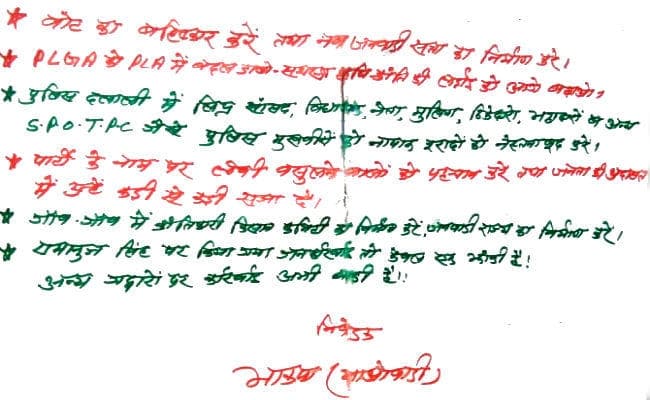 ★ वोट का बहिष्कार करें तथा नव जनवादी सत्ता का निर्माण करें।
★ PLGA को PLA में बदल डालो - सशस्त्र कृषि क्रांति की लड़ाई को आगे बढ़ाओ।
★ पुलिस दलाली में लिप्त सांसद, विधायक, नेता, मुखिया, ठिकेदारो, व अन्य
S.P.O. T.P.C जैसे पुलिस मुखबीरों को नापाक इरादों को नेस्तनाबूद करें!
★ पार्टी के नाम पर लेवी वसुलने वालों को पहचान करें तथा जनता की अदालत
में उन्हें कड़ी से कड़ी सजा दें।
★ गांव-गांव में क्रांतिकारी किसान कमिटी का निर्माण करें, जनवादी राज्य का निर्माण करें।
★ रामानुज सिंह पर किया गया जनकार्रवाई तो केवल एक झांकी है!
अन्य गद्दारों पर कार्रवाई अभी बाकी है!!
निवेदक
भाकपा (माओवादी)